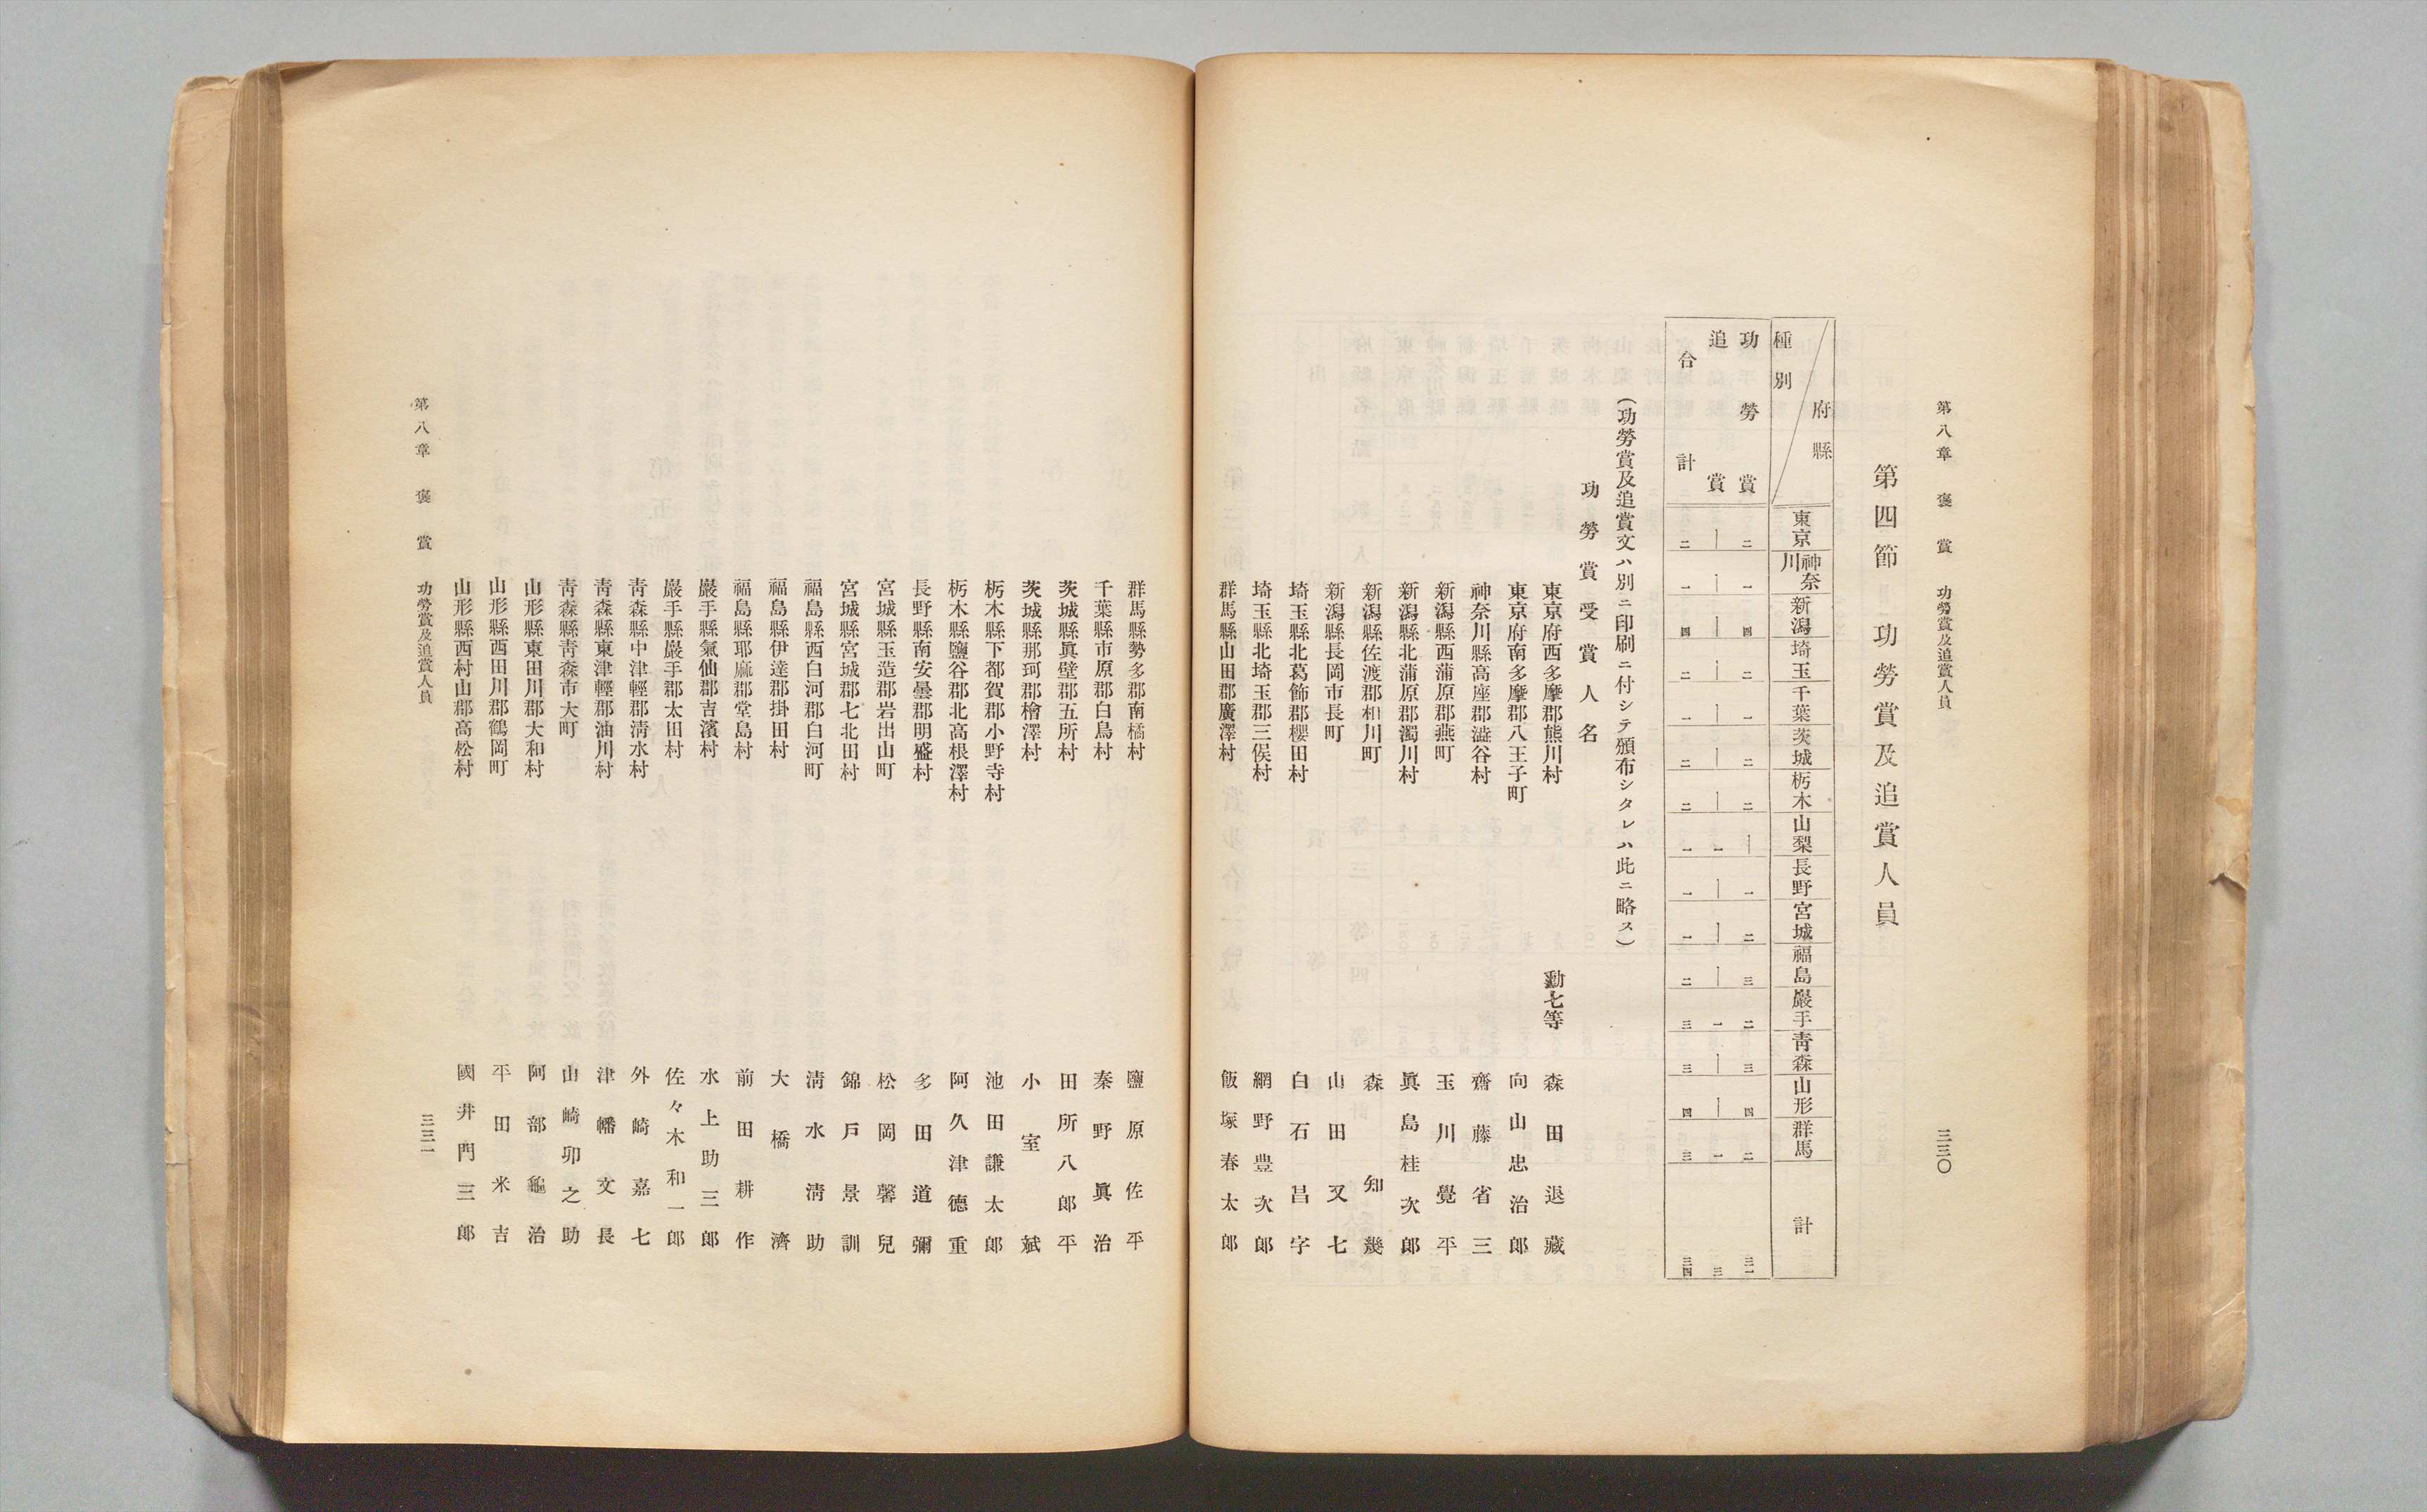 第八章 褒賞 功勞賞及追賞人員 三三〇
第四節 功勞賞及追賞人員
府縣 種別 東京 神奈川 新潟 埼玉 千葉 茨城 栃木 山梨 長野 宮城 福島 巖手 靑森 山形 群馬 計
功勞賞 二 一 四 二 一 二 二 ― 一 二 三 二 三 四 二 三一
追賞 ― ― ― ― ― ― ― 一 ― ― ― 一 ― ― 一 三
合計 二 一 四 二 一 二 二 一 一 一 二 三 三 四 三 三四
(功勞賞及追賞文ハ別ニ印刷ニ付シテ頒布シタレハ此ニ略ス)
功勞賞受賞人名
東京府西多摩郡熊川村 勳七等 森田退藏
東京府南多摩郡八王子町 向山忠治郎
神奈川縣高座郡澁谷村 齋藤省三
新潟縣西蒲原郡燕町 玉川覺平
新潟縣北蒲原郡濁川村 眞島桂次郎
新潟縣佐渡郡相川町 森知幾
新潟縣長岡市長町 山田又七
埼玉縣北葛飾郡櫻田村 白石昌字
埼玉縣北埼玉郡三俣村 網野豊次郎
群馬縣山田郡廣澤村 飯塚春太郎
群馬縣勢多郡南橘村 鹽原佐平
千葉縣市原郡白鳥村 秦野眞治
茨城縣眞壁郡五所村 田所八郎平
茨城縣那珂郡檜澤村 小室斌
栃木縣下都賀郡小野寺村 池田謙太郎
栃木縣鹽谷郡北高根澤村 阿久津德重
長野縣南安曇郡明盛村 多田道彌
宮城縣玉造郡岩出山町 松岡馨兒
宮城縣宮城郡七北田村 錦戶景訓
福島縣西白河郡白河町 淸水淸助
福島縣伊達郡掛田村 大橋濟
福島縣耶麻郡堂島村 前田耕作
巖手縣氣仙郡吉濱村 水上助三郎
巖手縣巖手郡太田村 佐々木和一郎
靑森縣中津輕郡淸水村 外崎嘉七
靑森縣東津輕郡油川村 津幡文長
靑森縣靑森市大町 山崎卯之助
山形縣東田川郡大和村 阿部龜治
山形縣西田川郡鶴岡町 平田米吉
山形縣西村山郡高松村 國井門三郎
第八章 褒賞 功勞賞及追賞人員 三三一